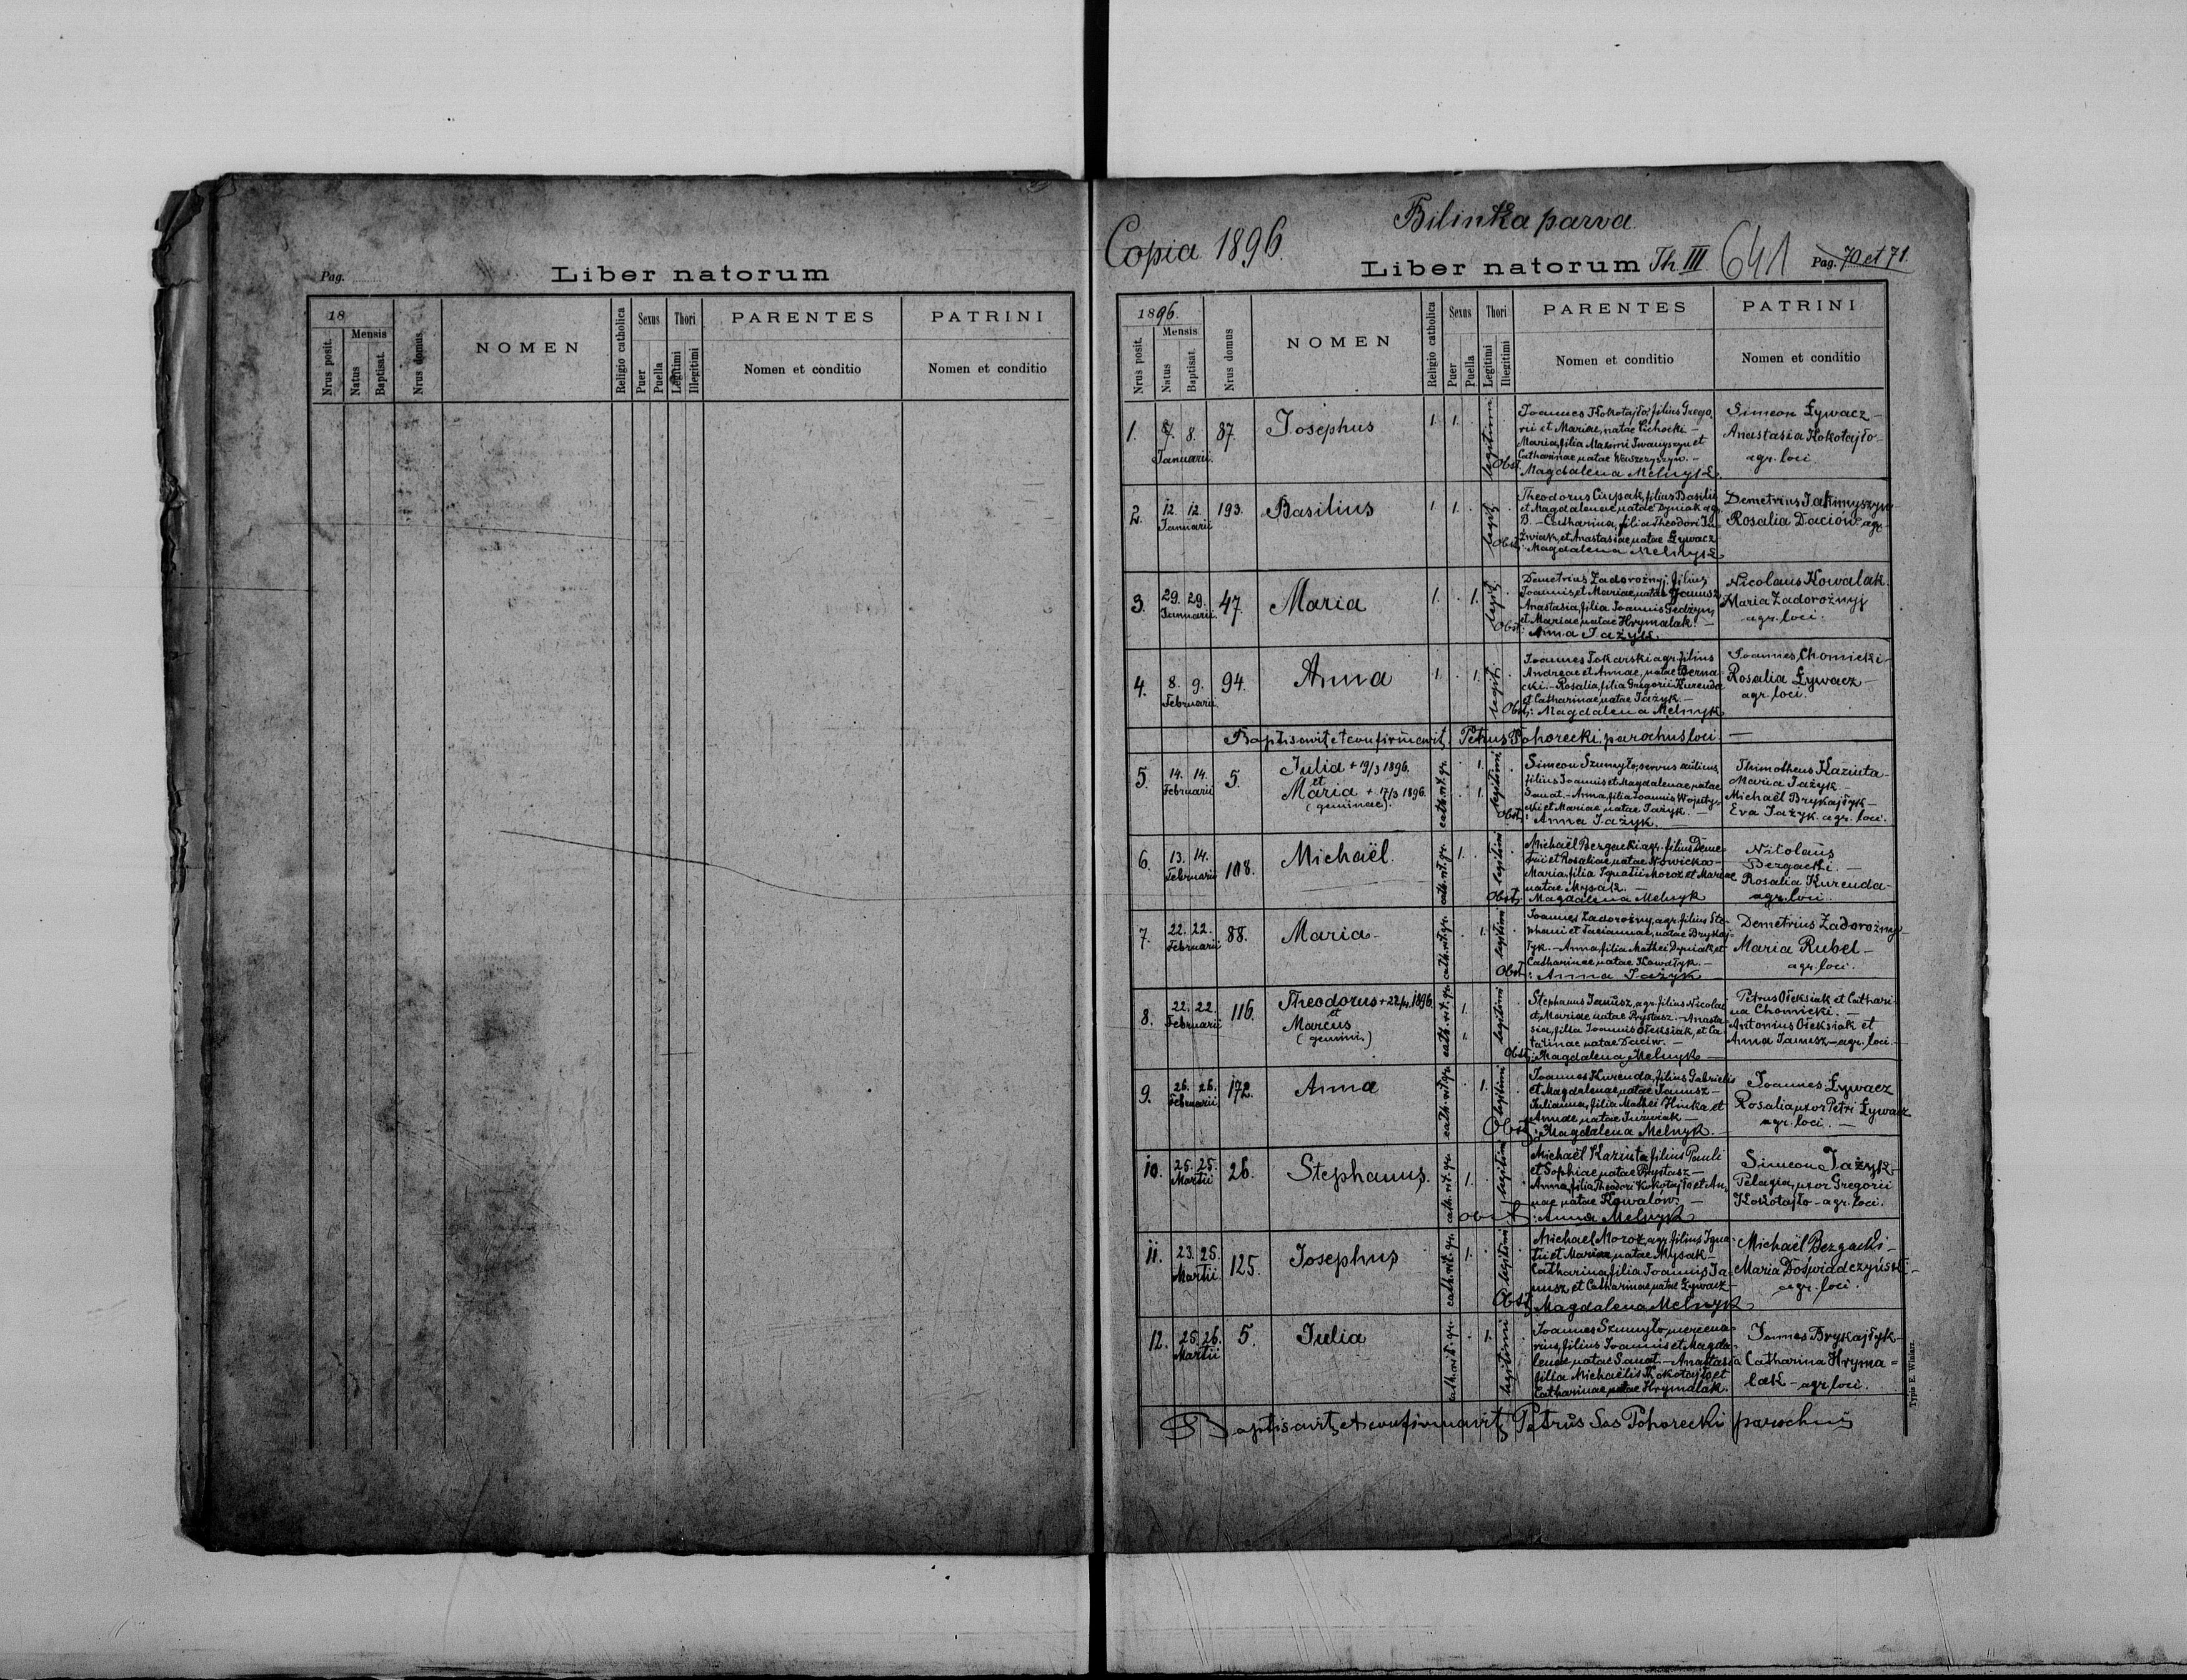 Pag.
Liber natorum
18
Mensis
Nrus posit.
Natus
Baptisat.
Nrus domus
NOMEN
Religio catholica
Sexus
Puer
Puella
Thori
Legitimi
Illegitimi
PARENTES
Nomen et conditio
PATRINI
Nomen et conditio
Bilinka parva
Copia 1896.
Liber natorum Th. III. 641 Pag. 70 et 71.
1896.
Mensis
Nrus posit.
Natus
Baptisat.
Nrus domus
NOMEN
Religio catholica
Sexus
Puer
Puella
Thori
Legitimi
Illegitimi
PARENTES
Nomen et conditio
PATRINI
Nomen et conditio
1. 8. 87. Josephus 1. 1. legitimi
Januarii.
Joannes Kokotajło, filius Grego
rii et Mariae, natae Cichocki –
Maria, filia Maximi Iwanyszyn et
Catharinae natae Waszczyszyn. –
Obst. Magdalena Melnyk.
Simeon Żywacz –
Anastasia Kokotajło –
agr. loci
2. 12. 12. 193. Basilius 1. 1. legit.
Januarii
Theodorus Ciupak, filius Basilii
et Magdalenae natae Dyniak agr.
B. – Catharina, filia Theodori Ju
źwiak, et Anastasiae natae Żywacz
Obst. Magdalena Melnyk
Demetrius Jakimyszyn
Rosalia Daciów agr.
3. 29. 29. 47. Maria 1. 1. legit.
Januarii.
Demetrius Zadorożnyj. filius
Joannis et Mariae natae Janusz,
Anastasia, filia Joannis Gedzyn,
et Mariae natae Hrymalak. –
Obst: Anna Jażyk.
Nicolaus Kowalak.
Maria Zadorożnyj
agr. loci.
4. 8. 9. 94. Anna 1. 1. legit.
Februarii
Joannes Tokarski agr. filius
Andreae et Annae, natae Berna
cki. – Rosalia, filia Gregorii Kurenda
et Catharinae natae Jażyk. –
Obst: Magdalena Melnyk
Joannes Chomicki –
Rosalia Żywacz –
agr. loci.
Baptisavit et confirmavit Petrus Pohorecki, parochus loci –
5. 14. 14. 5. Julia + 19/3 1896. cath. rit. gr. 1. legitimi
Februarii et
Maria + 17/3 1896. 1.
(geminae).
Simeon Szumyło, servus
filius Joannis et Magdalenae, natae
Sanat. – Anna, filia Joannis Wojuty
cki et Mariae natae Jażyk. –
Obst: Anna Jażyk.
Thimotheus Kaziuta –
Maria Jażyk
Michaël Brykajłyk –
Eva Jażyk. agr. loci.
6. 13. 14. 108. Michaël. cath. rit. gr. 1. legitimi
Februarii
Michaël Bezgacki agr. filius Deme
trii et Rosaliae, natae Nowicka –
Maria, filia Ignatii Moroz et Mariae
natae Mysak. –
Obst. Magdalena Melnyk
Nicolaus
Bezgacki. –
Rosalia Kurenda –
agr. loci.
7. 22. 22. 88. Maria – cath. rit. gr. 1. legitimi
Februarii
Joannes Zadorożny, agr. filius Ste
phani et Taciannae, natae Brykaj
łyk. – Anna, filia Mathei Dyniak et
Catharinae, natae Kowałyk. –
Obst: Anna Jażyk
Demetrius Zadorożny –
Maria Rubel –
agr. loci.
8. 22. 22. 116. Theodorus + 1896. cath. rit. gr. 1. legitimi
Februarii et
Marcus
(gemini)
Stephanus Janusz, agr. filius Nicolai
et Mariae natae Prystasz. – Anasta
sia, filia Joannis Ołeksiak, et Ca
tarinae natae Daciw. –
Obst: Magdalena Melnyk –
Petrus Ołeksiak et Cathari
na Chomicki. –
Antonius Ołeksiak et
Anna Janusz – agr. loci. –
9. 26. 26. 172. Anna cath. rit. gr. 1. legitimi
Februarii
Joannes Kurenda, filius Gabrielis
et Magdalenae natae Janusz –
Julianna, filia Mathei Hinka et
Annae natae Juźwiak –
Obst: Magdalena Melnyk. –
Joannes Żywacz
Rosalia uxor Petri Żywacz
agr. loci. –
10. 25. 25. 26. Stephanus. cath. rit. gr. 1. legitimi
Martii
Michaël Kaziuta filius Pauli
et Sophiae natae Prystasz –
Anna, filia Theodori Kokotajło et An
nae natae Kowalów. –
Obst: Anna Melnyk
Simeon Jażyk –
Pelagia, uxor Gregorii
Kokotajło – agr. loci.
11. 23. 25. 125. Josephus cath. rit. gr. 1. legitimi
Martii
Michael Moroz agr. filius Igna
tii et Mariae, natae Mysak –
Catharina filia Joannis Ja
nusz, et Catharinae natae Żywacz –
Obst. Magdalena Melnyk
Michaël Bezgacki –
Maria Doświadczyński –
agr. loci.
12. 25. 26. 5. Julia cath. rit. gr. 1. legitimi
Martii
Joannes Szumyło, mercena
rius, filius Joannis et Magda
lenae natae Sanat. – Anastasia
filia Michaëlis Kokotajło et
Catharinae, natae Hrymalak.
Joannes Brykajłyk –
Catharina Hryma =
lak – agr. loci.
Baptisavit et confirmavit Petrus Sas Pohorecki parochus
Typis E. Winiarz.